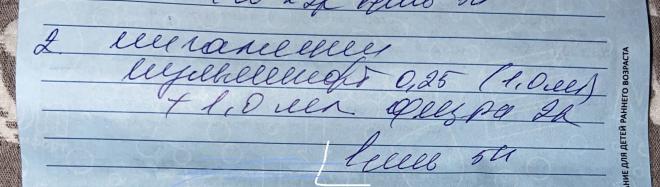 2 ингаляции
пульмикорт 0,25 (1,0 мл)
+ 1,0 мл физра 2р
в день 5
НИЕ ДЛЯ ДЕТЕЙ РАННЕГО ВОЗРАСТА